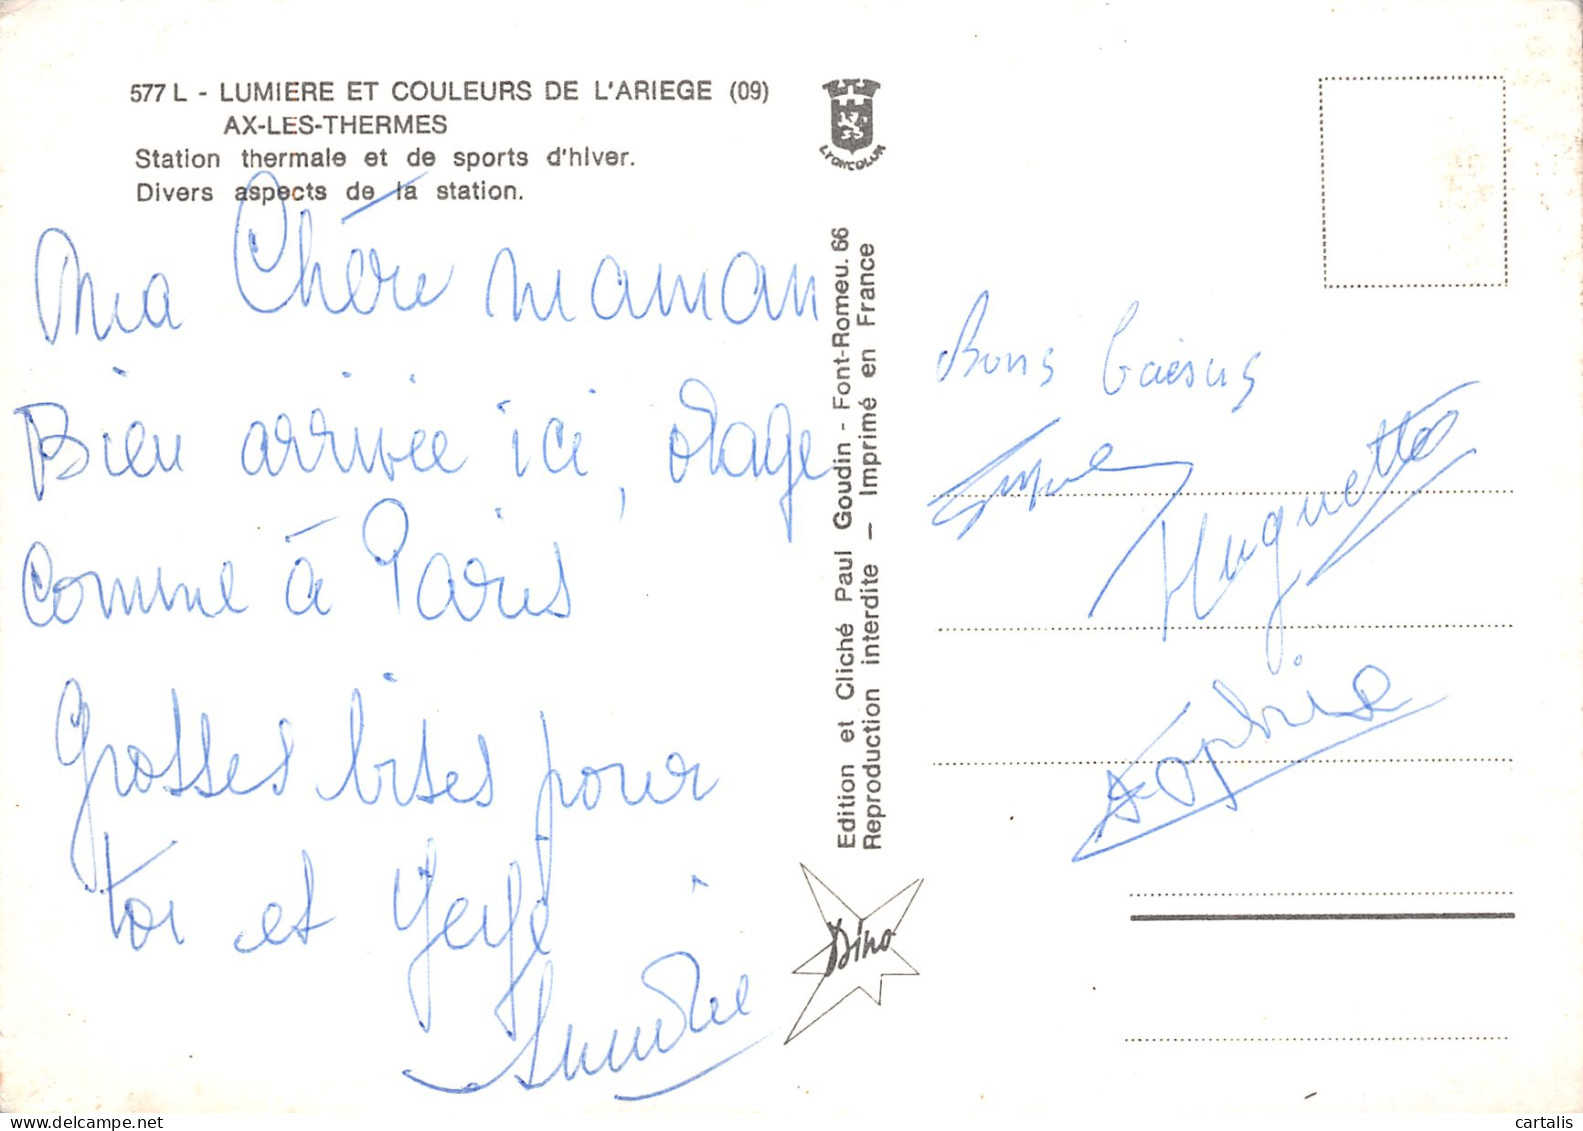 577 L - LUMIERE ET COULEURS DE L'ARIEGE (09)
AX-LES-THERMES
Station thermale et de sports d'hiver.
Divers aspects de la station.
Ma Chère maman
Bien arrivée ici, orage
comme à Paris
Grosses bises pour
toi et
LYONCOLOR
Edition et Cliché Paul Goudin - Font-Romeu. 66
Reproduction interdite — Imprimé en France
Dino
Bons baisers
Huguette
Sophie
cartalis